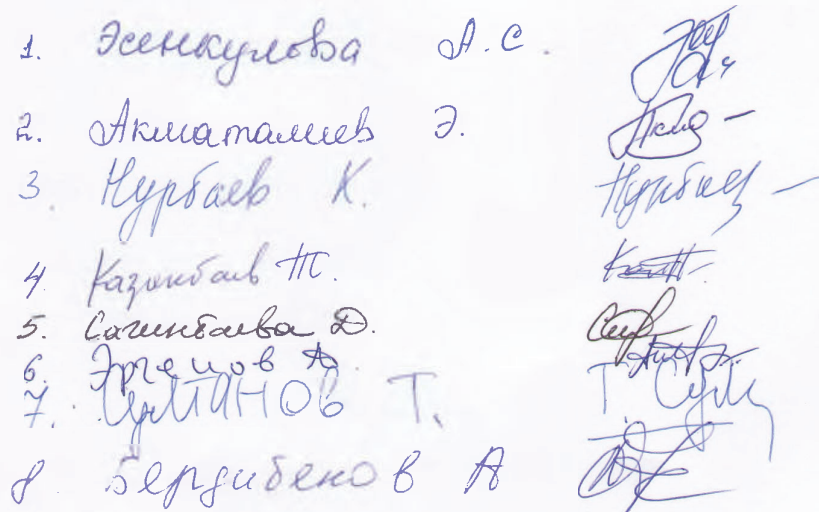 1. Эсенкулова А.С.
2. Акматалиев Э.
3. Нурбаев К. Нурбаев
4. Казакбаев Т.
5. Сагинбаева Д.
6. Эргешов А.
7. Султанов Т. Т. Сул
8 Бердибеков А